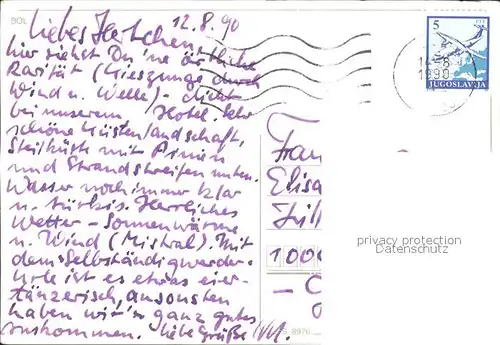 BOL
12.8.90
Liebes Herzchen,
hier siehst Du 'ne örtliche
Rarität (Kieszunge durch
Wind u. Welle) - dicht
bei unserem Hotel. Sehr
schöne Küstenlandschaft,
Steilküste mit Pinien
und Strandstreifen unten.
Wasser noch immer klar
u. türkis. Herrliches
Wetter - Sonnenwärme
u. Wind (Mistral). Mit
dem "Selbständigwerden"
ist es etwas eier-
tänzerisch, ansonsten
haben wir'n ganz gutes
Auskommen. Liebe Grüße
5
JUGOSLAVIJA
1990
Frau
Elisa
1000
privacy protection
Datenschutz
8976